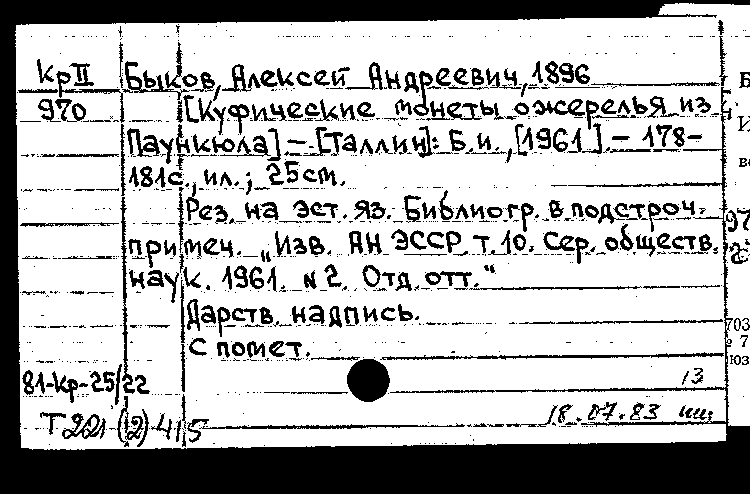 КрII Быков, Алексей Андреевич, 1896
970 [Куфические монеты ожерелья из
Паункюла] – [Таллин]: Б.и., [1961]. – 178–
181с., ил.; 25cm.
Рез. на эст. яз. Библиогр. в подстроч.
примеч. „Изв. АН ЭССР. т. 10. Сер. обществ.
наук. 1961. N2. Отд. отт."
Дарств. надпись.
С помет.
81-Кр-25/22
13
18.07.83
Т 221 (12) 415